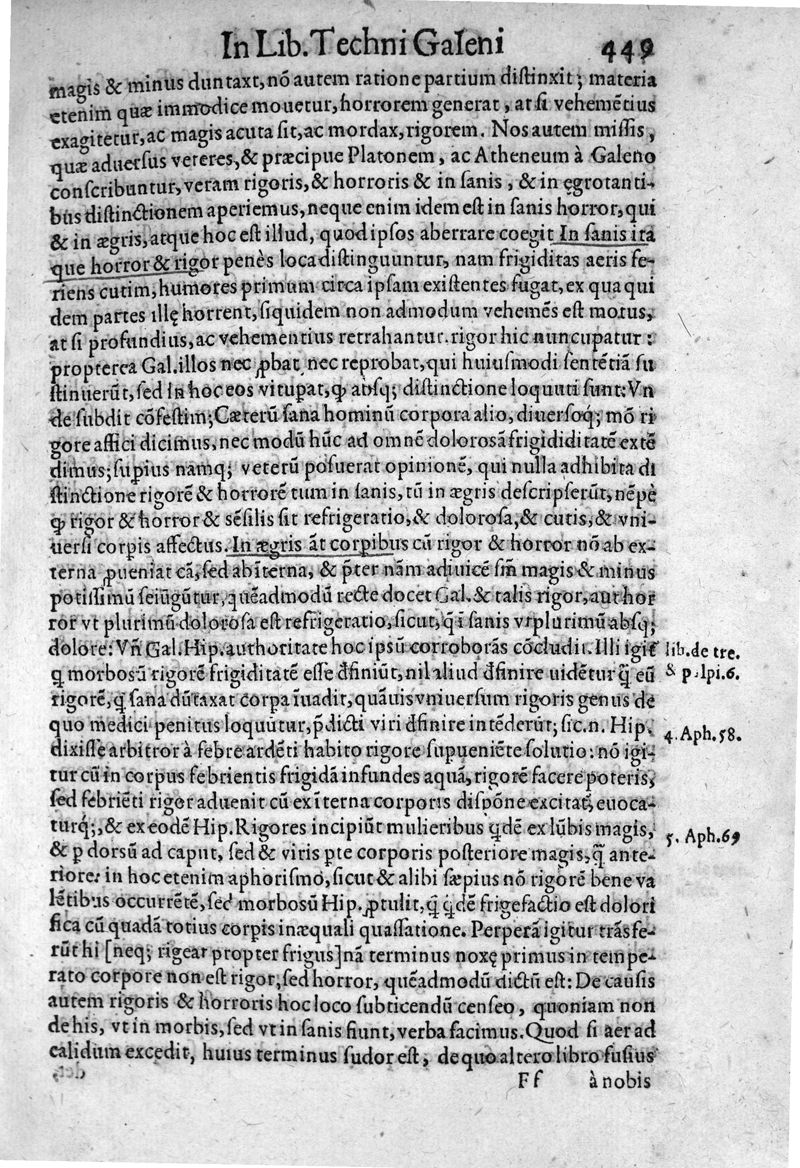 In Lib. Techni Galeni 449
magis & minus duntaxt, nõ autem ratione partium distinxit; materia
etenim quæ immodice mouetur, horrorem generat, at si vehemẽtius
exagitetur, ac magis acuta sit, ac mordax, rigorem. Nos autem missis,
quæ aduersus veteres, & præcipue Platonem, ac Atheneum à Galeno
conscribuntur, veram rigoris, & horroris & in sanis, & in ęgrotanti-
bus distinctionem aperiemus, neque enim idem est in sanis horror, qui
& in ægris, atque hoc est illud, quod ipsos aberrare coegit In sanis ita
que horror & rigor penès loca distinguuntur, nam frigiditas aeris fe-
riens cutim, humores primum circa ipsam existentes fugat, ex qua qui
dem partes illę horrent, siquidem non admodum vehemẽs est motus,
at si profundius, ac vehementius retrahantur. rigor hic nuncupatur:
propterea Gal. illos nec ꝓbat nec reprobat, qui huiusmodi sentẽtiã su
stinuerũt, sed in hoc eos vitupat, ꝙ absq; distinctione loquuti sunt: Vn
de subdit cõfestim; Cæterũ sana hominũ corpora alio, diuersoq; mõ ri
gore affici dicimus, nec modũ hũc ad omnẽ dolorosã frigididitatẽ extẽ
dimus; supius namq; veterũ posuerat opinionẽ, qui nulla adhibita di
stinctione rigorẽ & horrorẽ tum in sanis, tũ in ægris descripserũt, nẽpè
ꝙ rigor & horror & sẽsilis sit refrigeratio, & dolorosa, & cutis, & vni-
uersi corpis affectus. In ægris ãt corpibus cũ rigor & horror nõ ab ex-
terna ꝓueniat cã, sed ab ĩterna, & p̃ter nãm adiuicẽ sm̃ magis & minus
potissimũ seiũgũtur, quẽadmodũ recte docet Gal. & talis rigor, aut hor
ror vt plurimũ dolorosa est refrigeratio, sicut, q̇ i sanis vt plurimũ absq;
dolore: Vñ Gal. Hip. authoritate hoc ipsũ corroborãs cõcludit. Illi igit̃ lib. de tre.
q morbosũ rigorẽ frigiditatẽ esse d̃finiũt, nil aliud d̃finire uidẽtur q̃ eũ & palpi. 6.
rigorẽ, q̇ sana dũtaxat corpa ĩuadit, quãuis vniuersum rigoris genus de
quo medici penitus loquũtur, p̃dicti viri d̃finire intẽderũt; sic.n. Hip.
dixisse arbitror à febre ardẽti habito rigore supueniẽte solutio: nõ igi- 4. Aph. 58.
tur cũ in corpus febrientis frigidã infundes aquã, rigorẽ facere poteris,
sed febriẽti rigor aduenit cũ ex ĩterna corporis dispõne excitat̃, euoca-
turq́;, & ex eodẽ Hip. Rigores incipiũt mulieribus q̇dẽ ex lũbis magis, 5. Aph. 69
& p dorsũ ad caput, sed & viris pte corporis posteriore magis, q̃ ante-
riore: in hoc etenim aphorismo, sicut & alibi sæpius nõ rigorẽ bene va
lẽtibus occurrẽtẽ, sed morbosũ Hip. ꝓtulit, q̇ q̇dẽ frigefactio est dolori
fica cũ quadã totius corpis inæquali quassatione. Perperã igitur trãsfe-
rũt hi [neq; rigear propter frigus] nã terminus noxę primus in tempe-
rato corpore non est rigor, sed horror, quẽadmodũ dictũ est: De causis
autem rigoris & horroris hoc loco subticendũ censeo, quoniam non
de his, vt in morbis, sed vt in sanis fiunt, verba facimus. Quod si aer ad
calidum excędit, huius terminus sudor est, de quo altero libro fusius
Ff à nobis